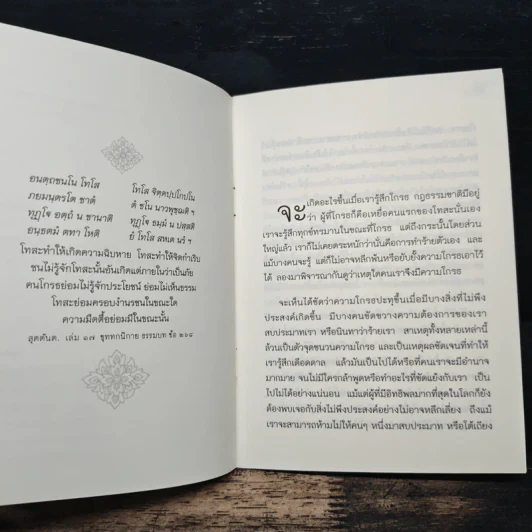 อนตฺถชนโน โทโส
โทโส จิตฺตปฺปโกปโน
ภยมนฺตรโต ชาตํ
ตํ ชโน นาวพุชฺฌติ ฯ
ทุฏฺโฐ อตฺถํ น ชานาติ
ทุฏฺโฐ ธมฺมํ น ปสฺสติ
อนฺธตมํ ตทา โหติ
ยํ โทโส สหเต นรํ ฯ
โทสะทำให้เกิดความฉิบหาย โทสะทำให้จิตกำเริบ
ชนไม่รู้จักโทสะนั้นอันเกิดแต่ภายในว่าเป็นภัย
คนโกรธย่อมไม่รู้จักประโยชน์ ย่อมไม่เห็นธรรม
โทสะย่อมครอบงำนรชนในขณะใด
ความมืดตื้อย่อมมีในขณะนั้น
สุตตันต. เล่ม ๑๗ ขุททกนิกาย ธรรมบท ข้อ ๒๖๘
จะเกิดอะไรขึ้นเมื่อเรารู้สึกโกรธ กฎธรรมชาติมีอยู่
ว่า ผู้ที่โกรธก็คือเหยื่อคนแรกของโทสะนั่นเอง
เราจะรู้สึกทุกข์ทรมานในขณะที่โกรธ แต่ถึงกระนั้นโดยส่วน
ใหญ่แล้ว เราก็ไม่เคยตระหนักว่านั่นคือการทำร้ายตัวเอง และ
แม้บางคนจะรู้ แต่ก็ไม่อาจหลีกพ้นหรือยับยั้งความโกรธเอาไว้
ได้ ลองมาพิจารณากันดูว่าเหตุใดคนเราจึงมีความโกรธ
จะเห็นได้ชัดว่าความโกรธปะทุขึ้นเมื่อมีบางสิ่งที่ไม่พึง
ประสงค์เกิดขึ้น มีบางคนขัดขวางความต้องการของเรา
สบประมาทเรา หรือนินทาว่าร้ายเรา สาเหตุทั้งหลายเหล่านี้
ล้วนเป็นตัวจุดชนวนความโกรธ และเป็นเหตุผลชัดเจนที่ทำให้
เรารู้สึกเดือดดาล แล้วมันเป็นไปได้หรือที่คนเราจะมีอำนาจ
มากมาย จนไม่มีใครกล้าพูดหรือทำอะไรที่ขัดแย้งกับเรา เป็น
ไปไม่ได้อย่างแน่นอน แม้แต่ผู้ที่มีอิทธิพลมากที่สุดในโลกก็ยัง
ต้องพบเจอกับสิ่งไม่พึงประสงค์อย่างไม่อาจหลีกเลี่ยง ถึงแม้
เราจะสามารถห้ามไม่ให้คนๆ หนึ่งมาสบประมาท หรือโต้เถียง